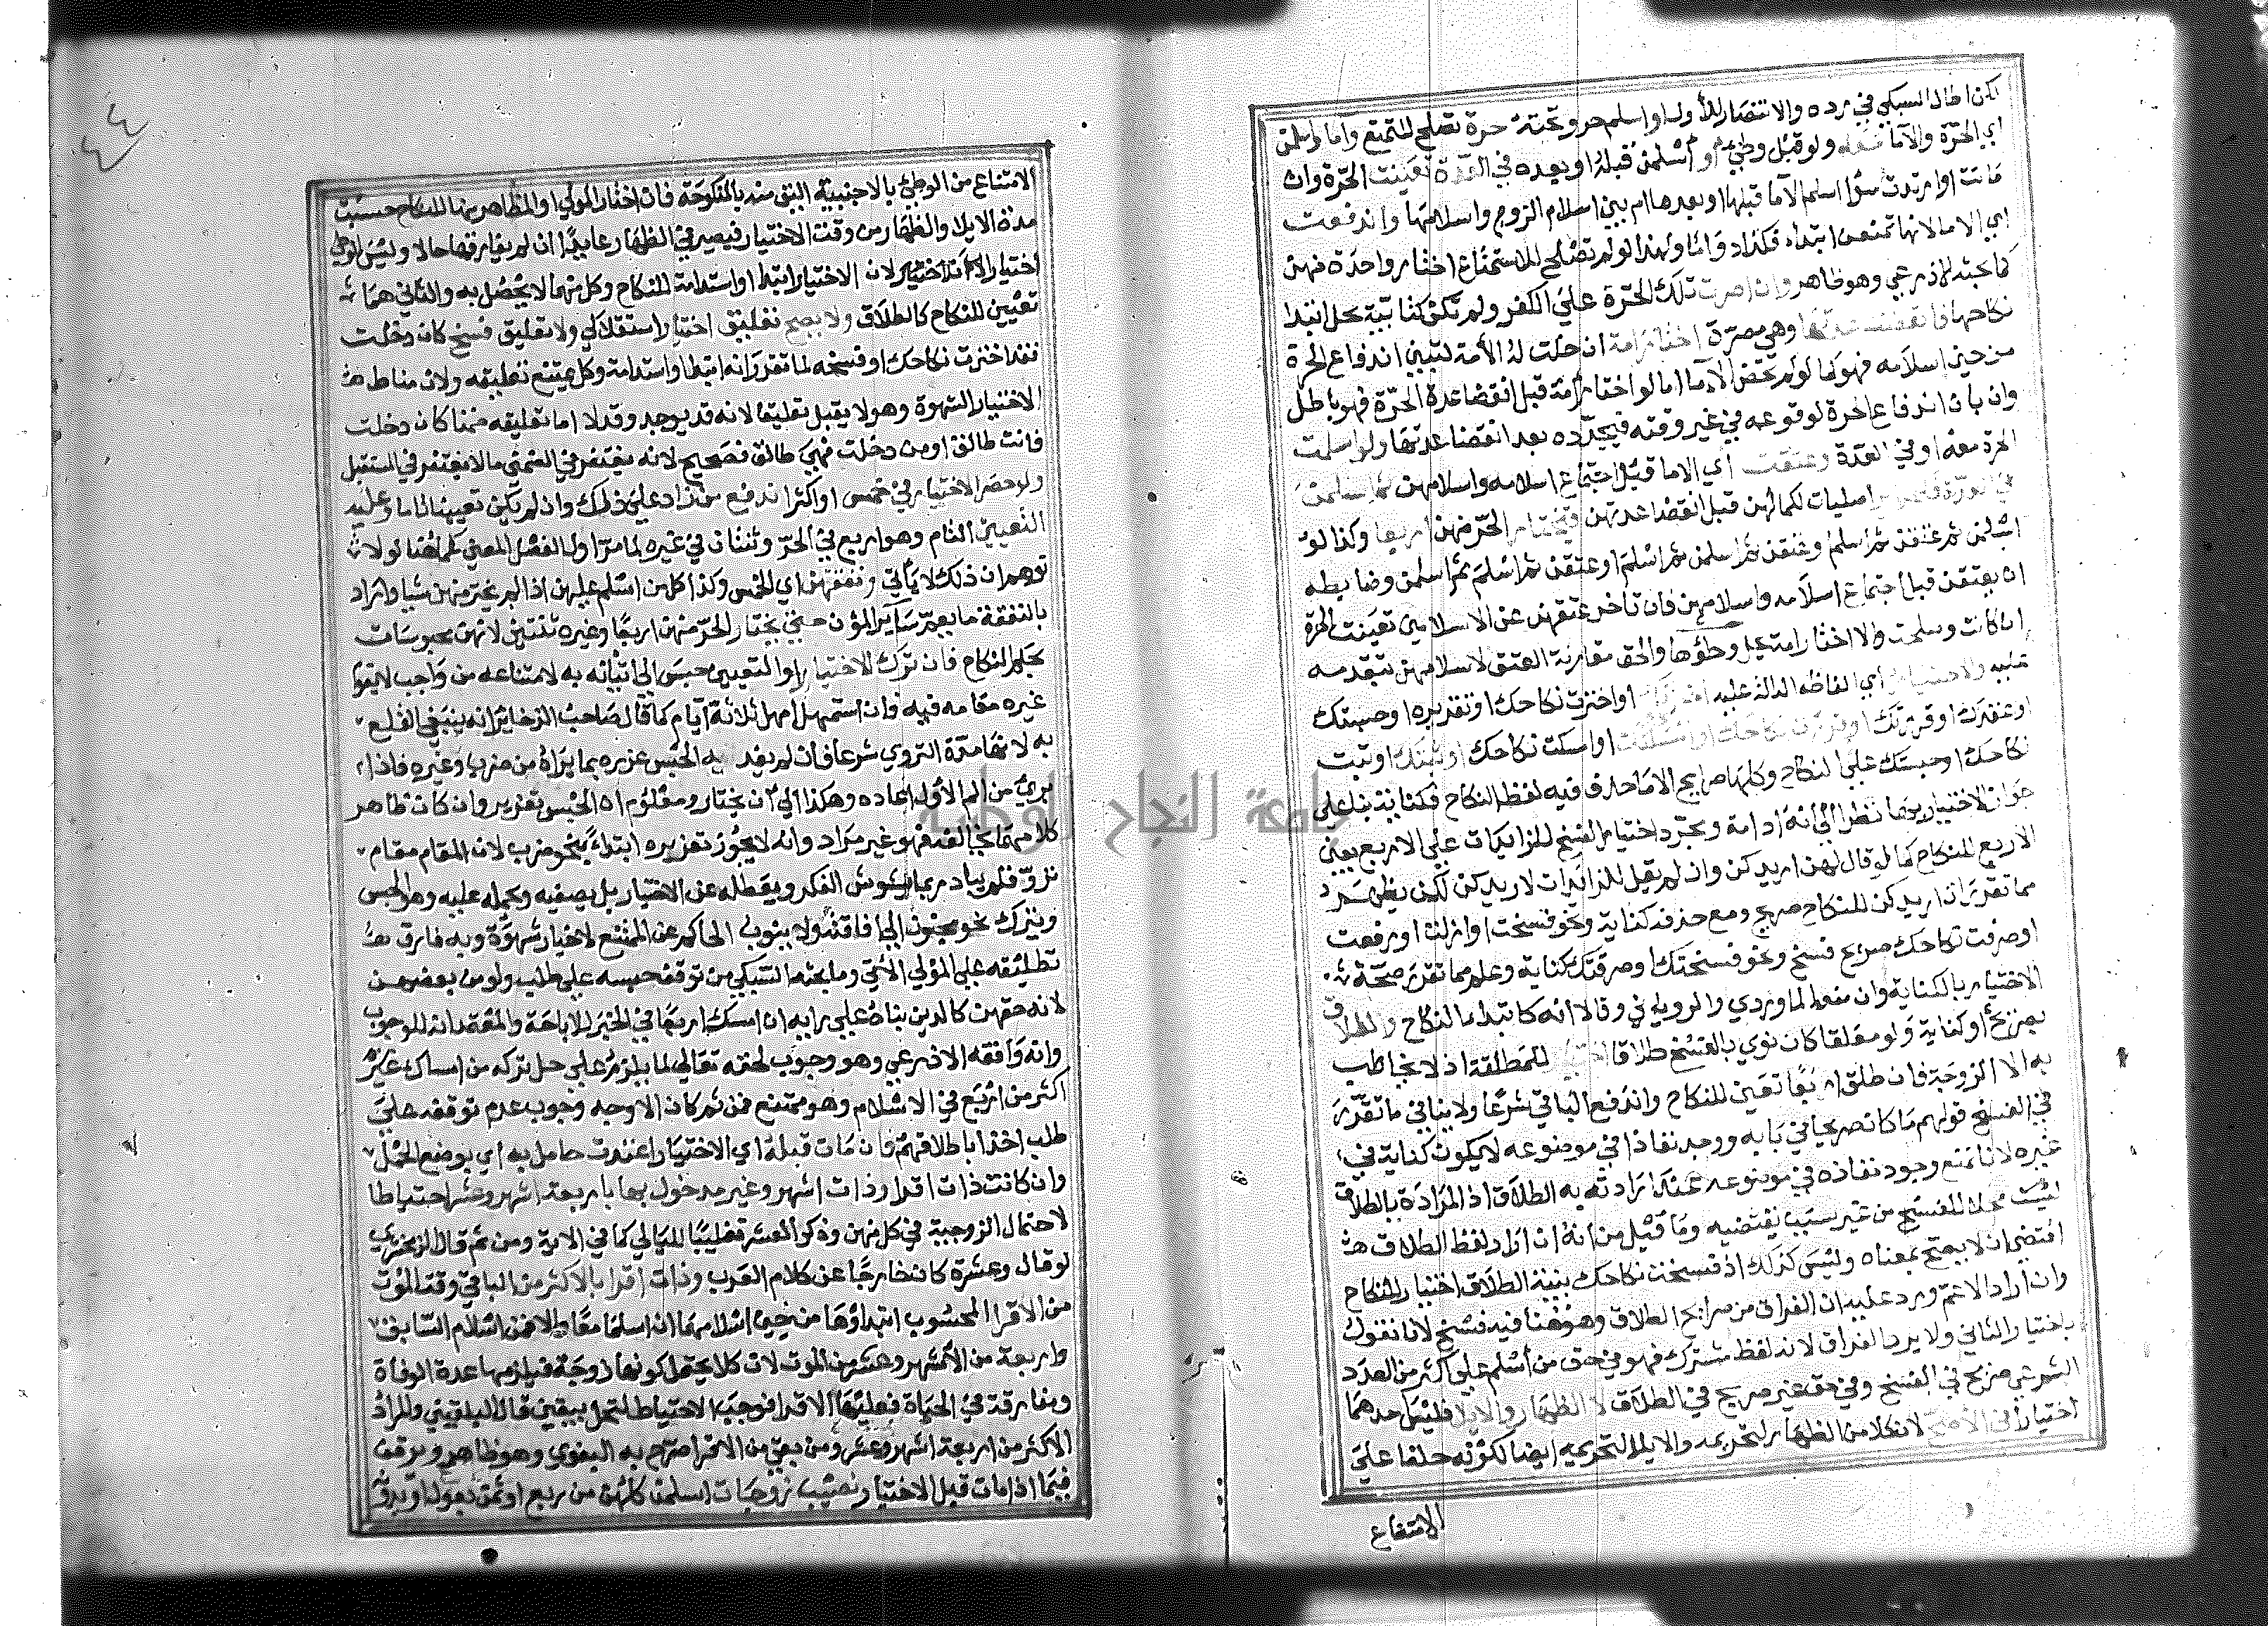 لكن اطال السبكي في رده والانتصار للأول او اسلم حر وتحته حرة تصلح للتمتع وآما واسلمن
اي الحرة والآما معه ولو قبل وطئ او أسلمن قبله او بعده في العدة تعينت الحرة وان
ماتت او ارتدت سوا اسلم الآما قبلها او بعدها ام بين اسلام الزوج واسلامها واندفعت
اي الاما لانها تمنعهن ابتداء فكذا دواما ولهذا لو لم تصلح للاستمتاع اختار واحدة منهن
كما بحثه الاذرعي وهو ظاهر وان اصرت تلك الحرة على الكفر ولم تكن كتابية يحل ابتدا
نكاحها فانقضت عدتها وهي مصرة اختار امة ان حلت له الأمة لتبين اندفاع الحرة
من حين اسلامه فهو كما لو لم تمحض الآما اما لو اختار أمة قبل انقضا عدة الحرة فهو باطل
وان بان اندفاع الحرة لوقوعه في غير وقته فيجدده بعد انقضا عدتها ولو اسلمت
الحرة معه او في العدة وعتقت اي الاما قبل اجتماع اسلامه واسلامهن ثم اسلمن
في العدة فكحرائر اصليات لكمالهن قبل انقضا عدتهن فيختار الحر منهن اربعا وكذا لو
اسلمن ثم عتقن ثم اسلم او عتقن ثم اسلمن ثم اسلم او عتقن ثم اسلم ثم اسلمن وضابطه
ان يعتقن قبل اجتماع اسلامه واسلامهن فان تأخر عتقهن عن الاسلامين تعينت الحرة
ان كانت وسلمت والا اختار امة يحل وطؤها والحق مقارنة العتق لاسلامهن بتقدمه
عليه والاختيار اي الفاظه الدالة عليه اخترتك او اخترت نكاحك او تقريره او حبستك
او عقدك او قررتك او قررت نكاحك او امسكتك او امسكت نكاحك او ثبتك او ثبت
نكاحك او حبستك على النكاح وكلها صرايح الا ما حذف فيه لفظ النكاح فكناية بنا على
جواز الاختيار بها نظرا الى أنه ادامة وبمجرد اختيار الفسخ للزائدات على الاربع يعين
الاربع للنكاح كما لو قال لهن اريدكن وان لم يقل للزائدات لا اريدكن لكن يظهر
مما تقرر ان اريدكن للنكاح صريح ومع حذفه كناية ونحو فسخت او ازلت او رفعت
او صرفت نكاحك صريح فسخ ونحو فسختك او صرفتك كناية وعلم مما تقرر صحة
الاختيار بالكناية وان منعه الماوردي والروياني وقالا انه كابتدا النكاح والطلاق
بصريح او كناية ولو معلقا كان نوى بالفسخ طلاقا اختيار للمطلقة اذ لا يخاطب
به الا الزوجة فان طلق اربعا تعين للنكاح واندفع الباقي شرعا ولا ينافي ما تقرر
في الفسخ قولهم ما كان صريحا في بابه ووجد نفاذا في موضوعه لا يكون كناية في
غيره لانا نمنع وجود نفاذه في موضوعه عند ارادته به الطلاق اذ المرادة بالطلاق
ليست محلا للفسخ من غير سبب يقتضيه وما قيل من انه ان اراد لفظ الطلاق
اقتضى ان لا يصح بمعناه وليس كذلك اذ فسخت نكاحك بنية الطلاق اختيار للنكاح
وان أراد الاعم ورد عليه ان الفراق من صرايح الطلاق وهو هنا فيه فسخ لانا نقول
باختيار الثاني ولا يرد الفراق لانه لفظ مشترك فهو في حق من أسلم على اكثر من العدد
الشرعي صريح في الفسخ وفي حق غير صريح في الطلاق لا الظهار والايلا فليس احدهما
اختيارا في الاصح لان كلا من الظهار لتحريمه والايلا لتحريمه ايضا لكونه حلفا على
الامتناع
الامتناع من الوطئ بالاجنبية اليق منه بالمنكوحة فان اختار المولي او المظاهر منها للنكاح حسبت
مدة الايلا والظهار من وقت الاختيار فيصير في الظهار عايدا ان لم يفارقها حالا وليس الوطي
اختيارا لان الاختيار ابتدا او استدامة للنكاح وكل منهما لا يحصل به والثاني هما
تعيين للنكاح كالطلاق ولا يصح تعليق اختيار استقلالي ولا تعليق فسخ كان دخلت
فقد اخترت نكاحك او فسخه لما تقرر انه ابتدا او استدامة وكل يمتنع تعليقه ولان مناط
الاختيار الشهوة وهو لا يقبل تعليقا لانه قد يوجد وقد لا اما تعليقه ضمنا كان دخلت
فانت طالق او من دخلت فهي طالق فصحيح لانه يغتفر في الضمني ما لا يغتفر في المستقل
ولو حصر الاختيار في خمس او اكثر اندفع من زاد على ذلك وان لم يكن تعيينا تاما وعليه
التعيين التام وهو اربع في الحر وثنتان في غيره لما مر اول الفصل المعني كما هنا لولا
توهم ان ذلك لا يأتي ونفقتهن اي الخمس وكذا كل من اسلم عليهن اذا لم يختر منهن شيا واراد
بالنفقة ما يعم سآير المؤن حتى يختار الحر منهن اربعا وغيره ثنتين لانهن محبوسات
بحكم النكاح فان ترك الاختيار او التعيين حبس الى اتيانه به لامتناعه من واجب لا يقوم
غيره مقامه فيه فان استمهل امهل ثلاثة آيام كما قال صاحب الذخاير انه ينبغي القطع
به لانها مدة التروي شرعا فان لم يفد به الحبس عزره بما يراه من ضرب وغيره فاذا
برئ من الم الأول اعاده وهكذا الى أن يختار ومعلوم ان الحبس تعزير وان كان ظاهر
كلامهم يخالفه فهو غير مراد وانه لا يجوز تعزيره ابتداء بنحو ضرب لان المقام مقام
تروّ فلم يبادر بما يشوش الفكر ويعطله عن الاختيار بل يصفيه ويحمله عليه وهو الحبس
ويترك نحو مجنون الى افاقته ولا ينوب الحاكم عن الممتنع لانه خيار شهوة وبه فارق
تطليقه على المولي الآتي وما بحثه السبكي من توقف حبسه على طلب ولو من بعضهن
لانه حقهن كالدين بناه على رايه ان امسك اربعا في الخبر للاباحة والمعتمد انه للوجوب
وانه وافقه الاذرعي وهو وجوب لحقه تعالى لما يلزم على حل تركه من امساك
اكثر من أربع في الاسلام وهو ممتنع فمن ثم كان الاوجه وجوب عدم توقفه على
طلب اخذا باطلاقهم فان مات قبله اي الاختيار اعتدت حامل به اي بوضع الحمل
وان كانت ذات اقرا وذات اشهر وغير مدخول بها باربعة اشهر وعشر احتياطا
لاحتمال الزوجية في كل منهن وذكر العشر تغليبا لليالي كما في الاية ومن ثم قال الزمخشري
لو قال وعشرة كان خارجا عن كلام العرب وذات اقرا بالاكثر من الباقي وقت الموت
من الاقرا المحسوب ابتداؤها من حين اسلامهما ان اسلما معا والا فمن اسلام السابق
واربعة من الاشهر وعشر من الموت لان كلا يحتمل كونها زوجة فيلزمها عدة الوفاة
ومفارقة في الحياة فعليها الاقرا فوجب الاحتياط لتحل بيقين قال البلقيني والمراد
الاكثر من اربعة اشهر وعشر ومن بقي من الاقرا صرح به البغوي وهو ظاهر ويوقف
فيما اذا مات قبل الاختيار نصيب زوجات اسلمن كلهن من ربع او ثمن بعول او بدونه